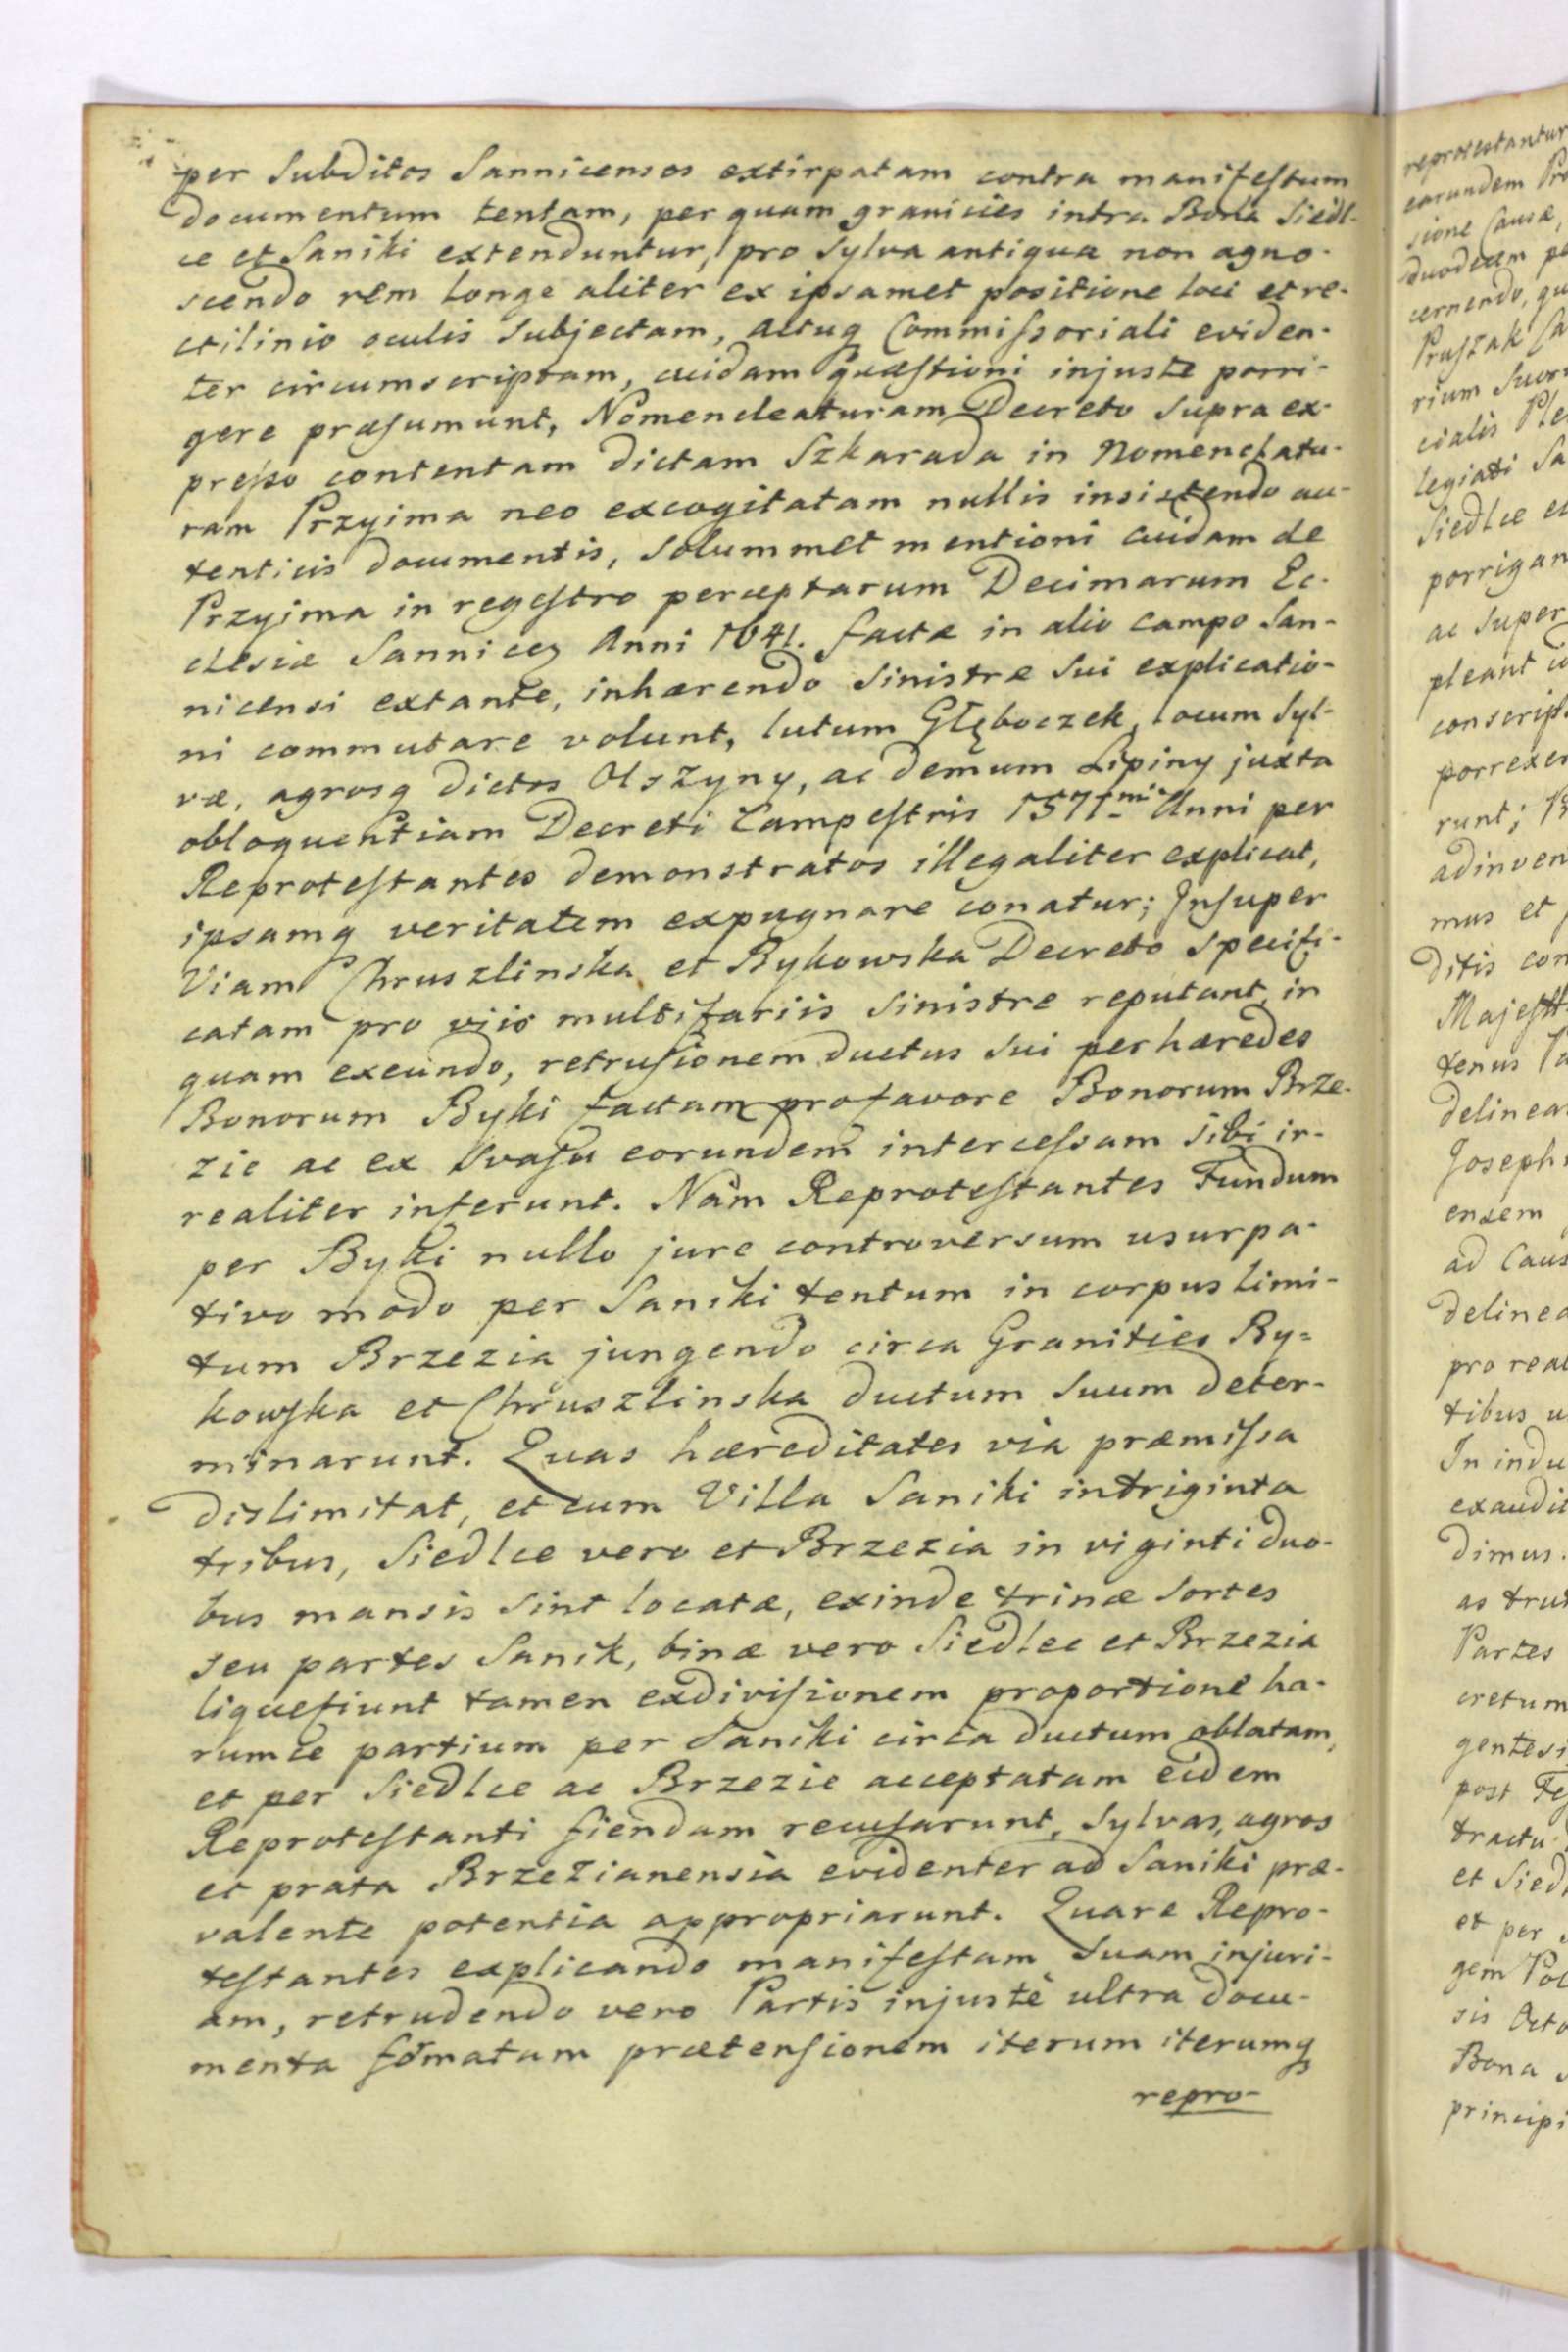 per Subditos Sannicenses extirpatam contra manifestum
documentum tentam, per quam granicies intra Bona Siedl-
ce et Saniki extenduntur, pro Sylva antiqua non agno-
scendo rem longe aliter ex ipsamet positione loci et re-
ctilinio oculis Subjectam, Actuq Commissoriali eviden-
ter circumscriptam, cuidam quæstioni injuste porri-
gere præsumunt, Nomencleaturam Decreto Supra ex-
presso contentam dictam Szkarada in Nomenclatu-
ram Przyima neo excogitatam nullis insistendo au-
tenticis documentis, Solummet mentioni cuidam de
Przyima in regestro perceptarum Decimarum Ec-
clesiæ Sannicen Anni 1641. factæ in alio campo San-
nicensi extante, inhærendo Sinistræ Sui explicatio-
ni commutare volunt, lutum Głęboczek, locum Syl-
væ, agrosq dictos Olszyny, ac demum Lipiny juxta
obloquentiam Decreti Campestris 1571mi Anni per
Reprotestantes demonstratos illegaliter explicat,
ipsamq veritatem expugnare conatur; Insuper
Viam Chruszlinska et Bykowska Decreto Specifi-
catam pro viis multifariis Sinistre reputant, in
quam exeundo, retrusionem ductus Sui per hæredes
Bonorum Byki factam pro favore Bonorum Brze-
zie ac ex Svasu eorundem intercessam Sibi ir-
realiter inferunt. Nam Reprotestantes Fundum
per Byki nullo jure controversum usurpa-
tivo modo per Saniki tentum in corpus limi-
tum Brzezia jungendo circa Granities By=
kowska et Chruszlinska ductum Suum deter-
minarunt. Quas hæreditates via præmissa
dislimitat, et cum Villa Saniki in triginta
tribus, Siedlce vero et Brzezia in viginti duo-
bus mansis Sint locatæ, exinde trinæ Sortes
seu partes Sanik, binæ vero Siedlce et Brzezia
liquefiunt tamen exdivisionem proportione ha-
rumce partium per Saniki circa ductum oblatam,
et per Siedlce ac Brzezie acceptatam eidem
Reprotestanti fiendam recusarunt, Sylvas, agros
et prata Brzezianensia evidenter ad Saniki præ-
valente potentia appropriarunt. Quare Repro-
testantes explicando manifestam Suam injuri-
am, retrudendo vero Partis injustè ultra docu-
menta fōmatam prætensionem iterum iterumq
repro-
reprotestantur
earundem
sione Causæ,
duodecim
cernendo,
Pruszak
rium
cialis
legiati
Siedlce
porrigan
ac Super
pleant
conscrips
porrexer
runt;
adinven
mus et
ditis con
Majestt
tenus
delinea
Joseph
ensem
ad Caus
delinea
pro real
tibus
In indu
exaudit
dimus.
as
Partes
cretum
gentesi
post
tractu
et Siedl
et per
gem Pol
sis Octo
Bona
principi